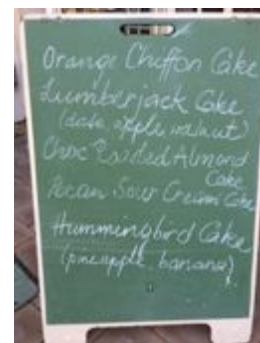 Orange Chiffon Cake
Lumberjack Cake
(date, apple, walnut)
Choc Roasted Almond
Cake
Pecan Sour Cream Cake
Hummingbird Cake
(pineapple, banana)